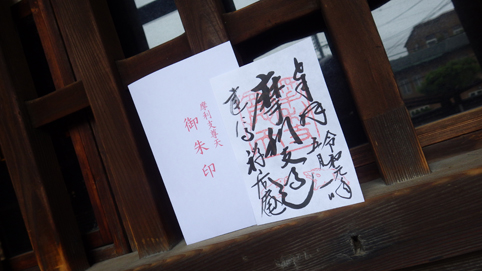 摩利支尊天
御朱印
奉拝
令和元年
五月一日
摩利支天
建仁寺禅居庵